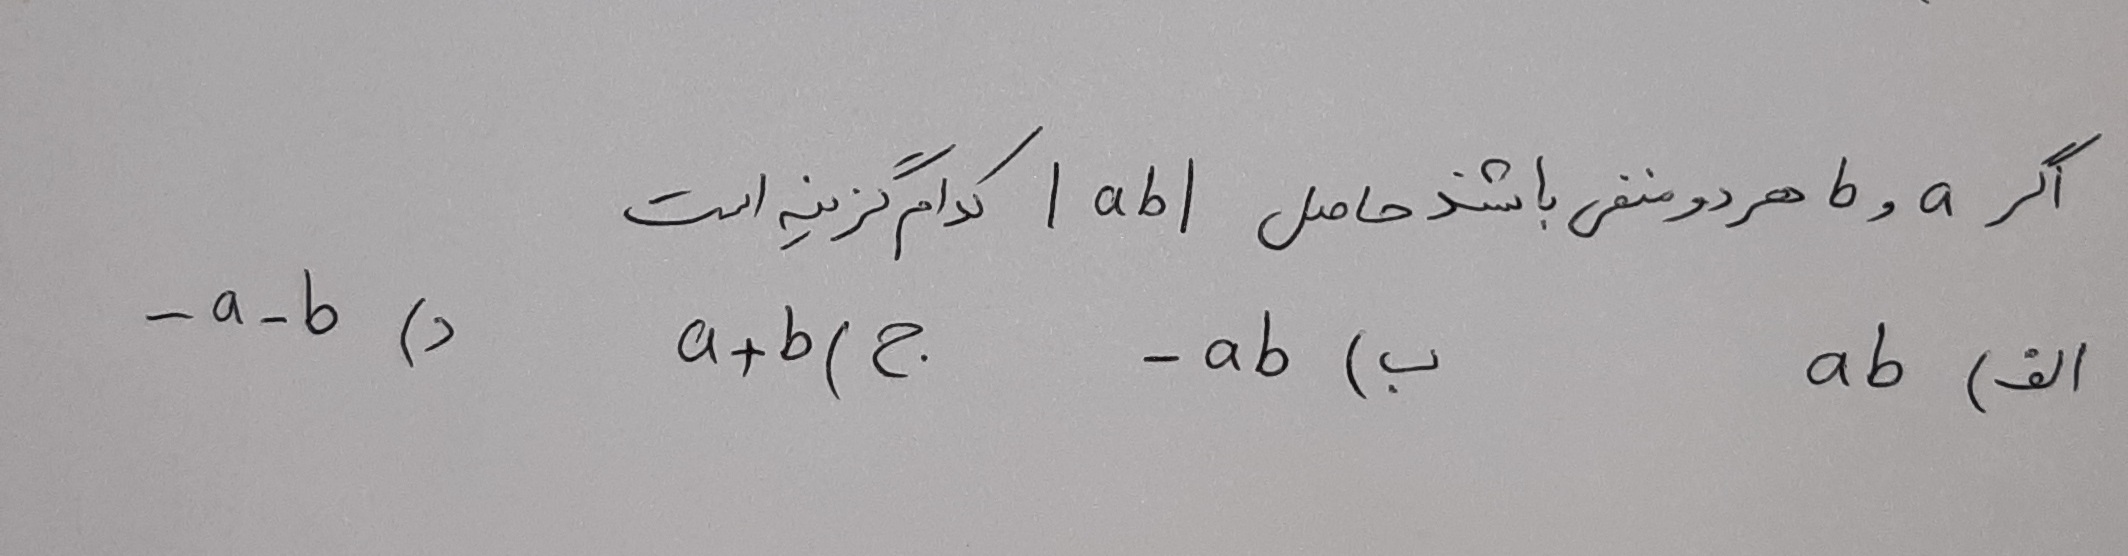 اگر a و b هر دو منفی باشند حاصل |ab| کدام گزینه است
الف) ab ب) -ab ج) a+b د) -a-b